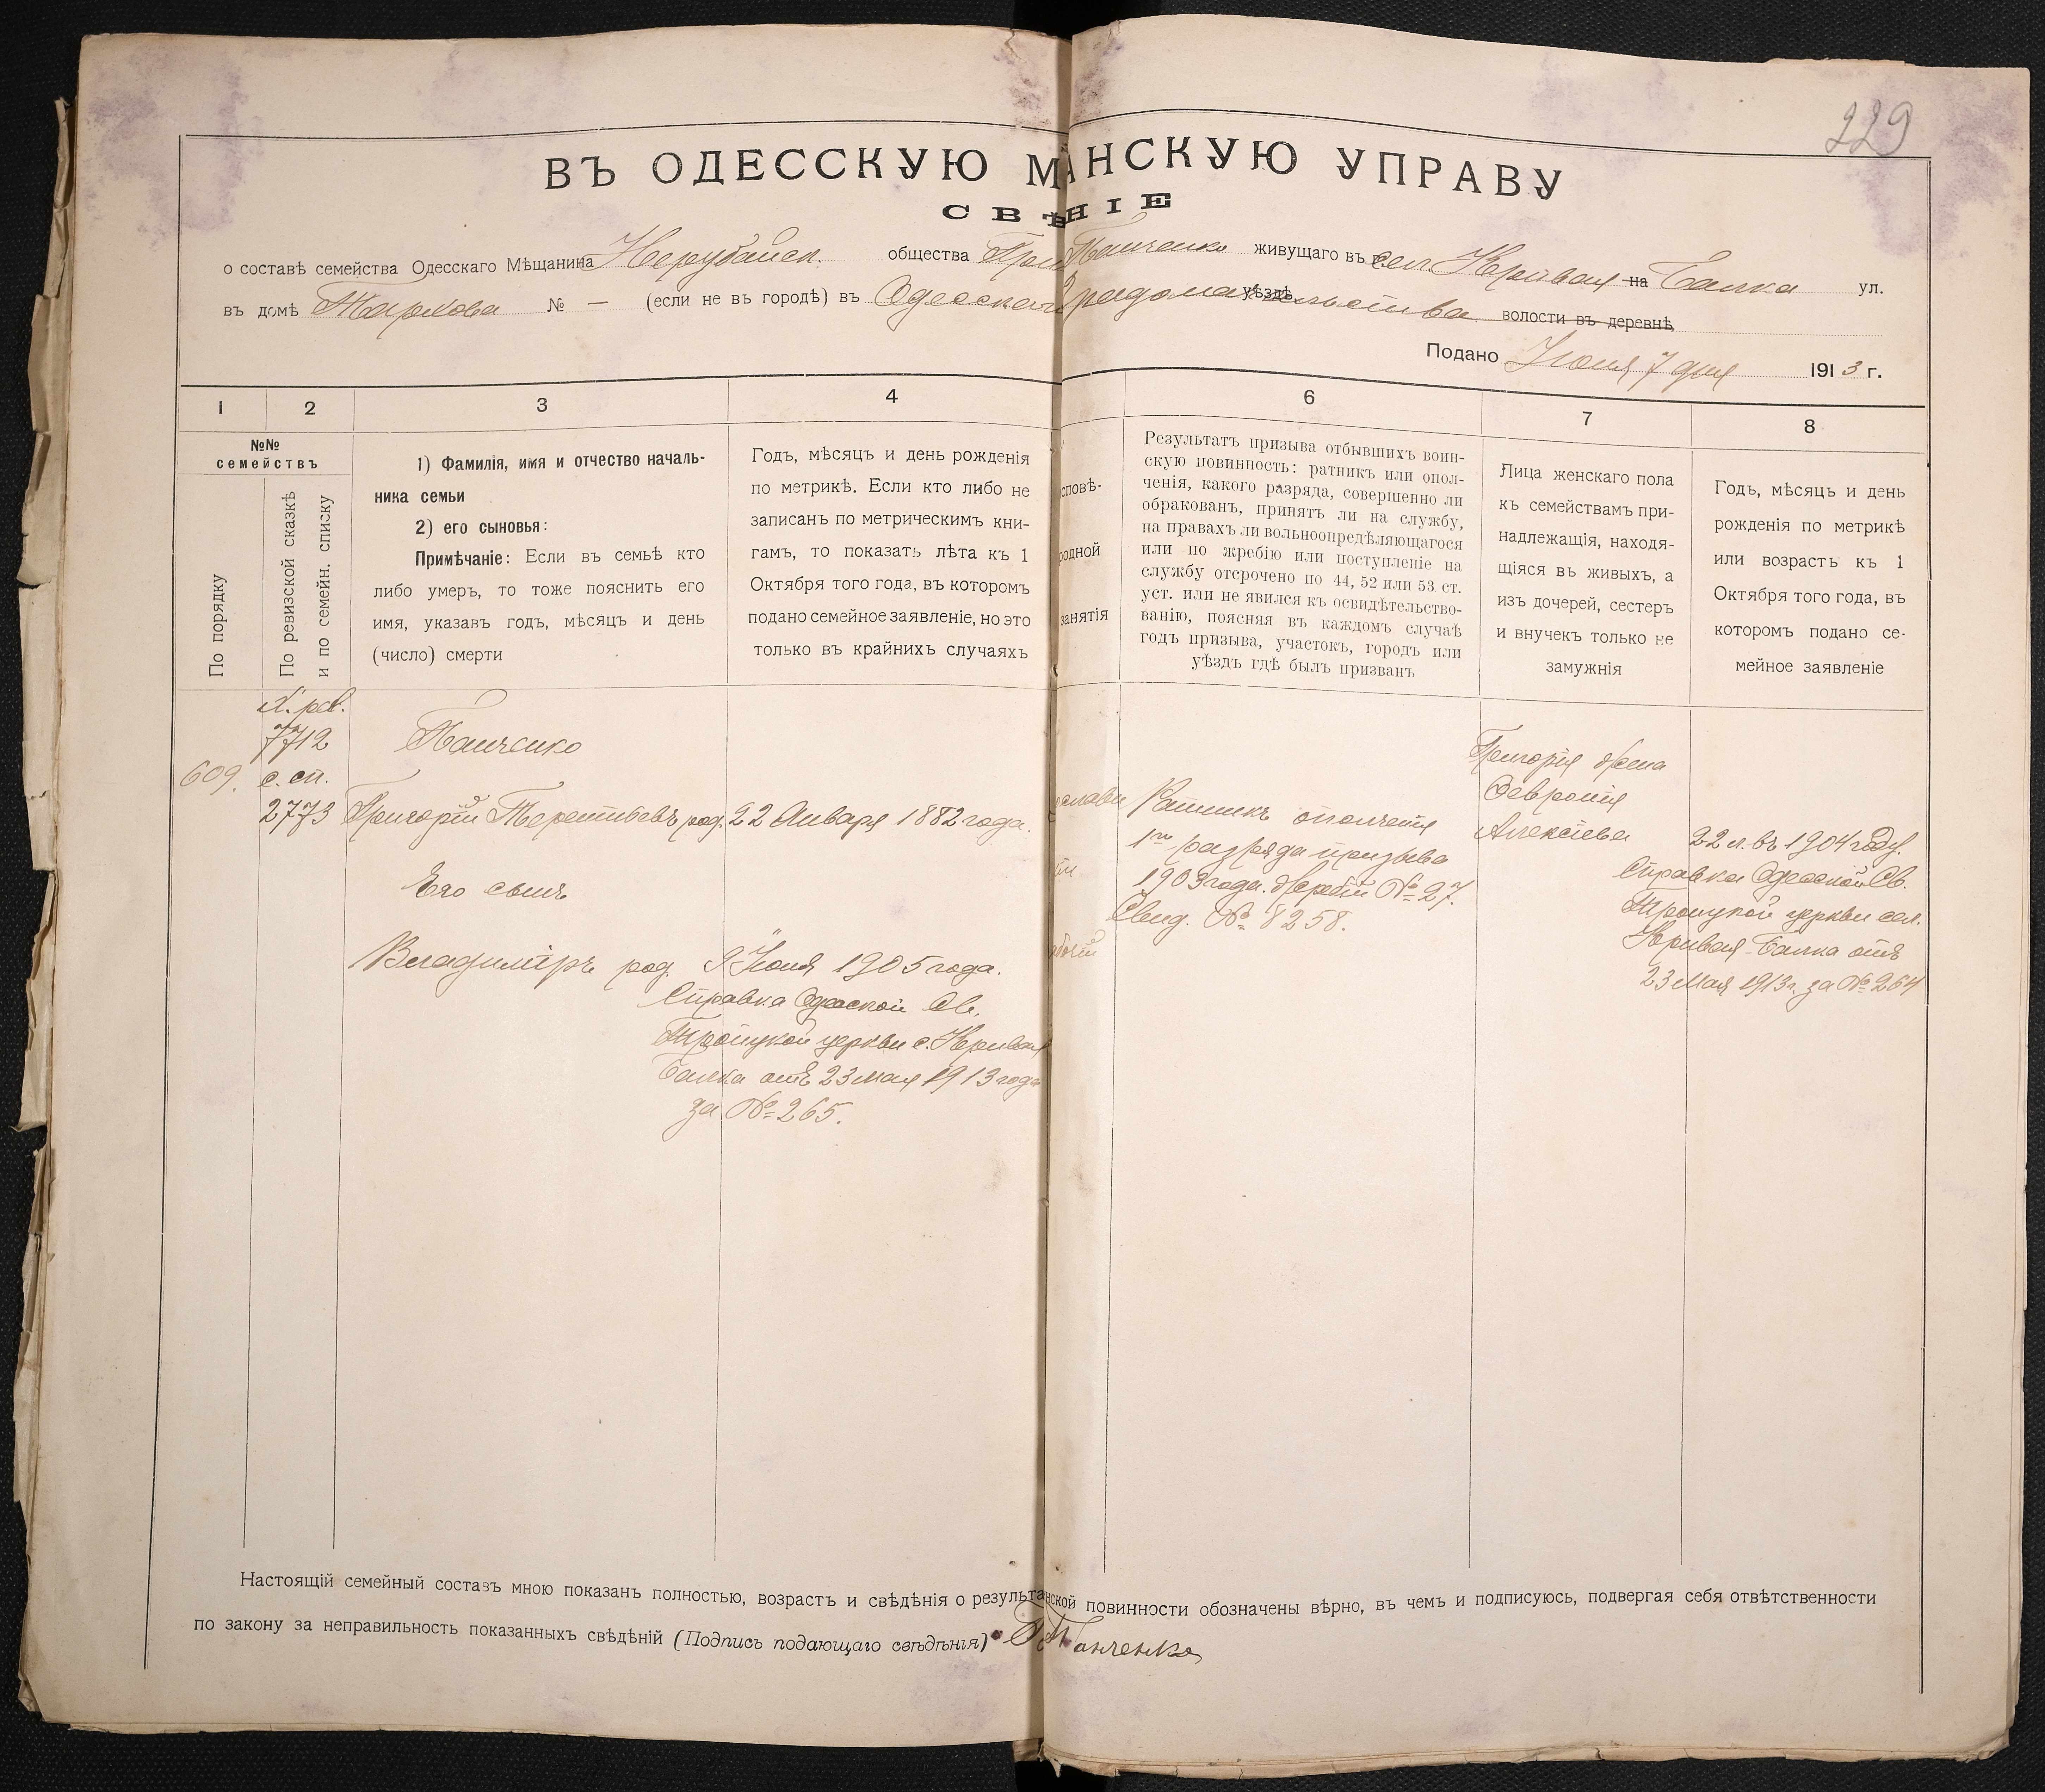 229
ВЪ ОДЕССКУЮ М АНСКУЮ УПРАВУ
СВѢ НІЕ
о составѣ семейства Одесскаго Мѣщанина Нерубайск. общества Панченко живущаго въ сел. Кривая на Балка ул.
въ домѣ № — (если не въ городѣ) въ Одесскаго Градоначальства уѣздѣ волости въ деревнѣ
Подано Июня 7 дня 1913 г.
1 2 3 4 6 7 8
№№
семействъ
По порядку
По ревизской сказкѣ
и по семейн. списку
1) Фамилія, имя и отчество началь-
ника семьи
2) его сыновья:
Примѣчаніе: Если въ семьѣ кто
либо умеръ, то тоже пояснить его
имя, указавъ годъ, мѣсяцъ и день
(число) смерти
Годъ, мѣсяцъ и день рожденія
по метрикѣ. Если кто либо не
записанъ по метрическимъ кни-
гамъ, то показать лѣта къ 1
Октября того года, въ которомъ
подано семейное заявленіе, но это
только въ крайнихъ случаяхъ
сповѣ-
родной
занятія
Результатъ призыва отбывшихъ воин-
скую повинность: ратникъ или опол-
ченія, какого разряда, совершенно ли
обракованъ, принятъ ли на службу,
на правахъ ли вольноопредѣляющагося
или по жребію или поступленіе на
службу отсрочено по 44, 52 или 53 ст.
уст. или не явился къ освидѣтельство-
ванію, поясняя въ каждомъ случаѣ
годъ призыва, участокъ, городъ или
уѣздъ гдѣ былъ призванъ
Лица женскаго пола
къ семействамъ при-
надлежащія, находя-
щіяся въ живыхъ, а
изъ дочерей, сестеръ
и внучекъ только не
замужнія
Годъ, мѣсяцъ и день
рожденія по метрикѣ
или возрастъ къ 1
Октября того года, въ
которомъ подано се-
мейное заявленіе
X. рев.
7712
609. с. сп.
2773
Панченко
Григорій Терентьевъ род. 22 Января 1882 года.
Его сынъ
Владиміръ род. 9 Июня 1905 года.
Справка Одесской Св.
Троицкой церкви с. Кривая
Балка отъ 23 мая 1913 года
за № 265.
ославн
Ратникъ ополченія
1го разряда призыва
1903 года. жребій № 27.
Свид. № 8258.
Григорія жена
Февронія
Алексѣева 22 л. въ 1904 году.
Справка Одесской Св.
Троицкой церкви сел.
Кривая Балка отъ
23 Мая 1913 г. за № 264
Настоящій семейный составъ мною показанъ полностью, возрастъ и свѣдѣнія о результа нской повинности обозначены вѣрно, въ чемъ и подписуюсь, подвергая себя отвѣтственности
по закону за неправильность показанныхъ свѣдѣній (Подпись подающаго свѣдѣнія) Г Панченко